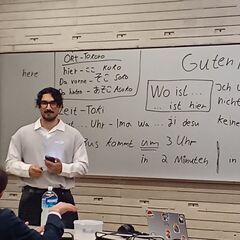 ORT - TOKORO
here
hier - ここ KoKo
Da vorne - そこ SoKo
Da hinten - あそこ ASoKo
Guten
Wo ist ...
... ist hier
Ich
nicht
Zeit - Toki
... Uhr - Ima wa ... zi desu
kommt um 3 Uhr
in 2 Minuten
in